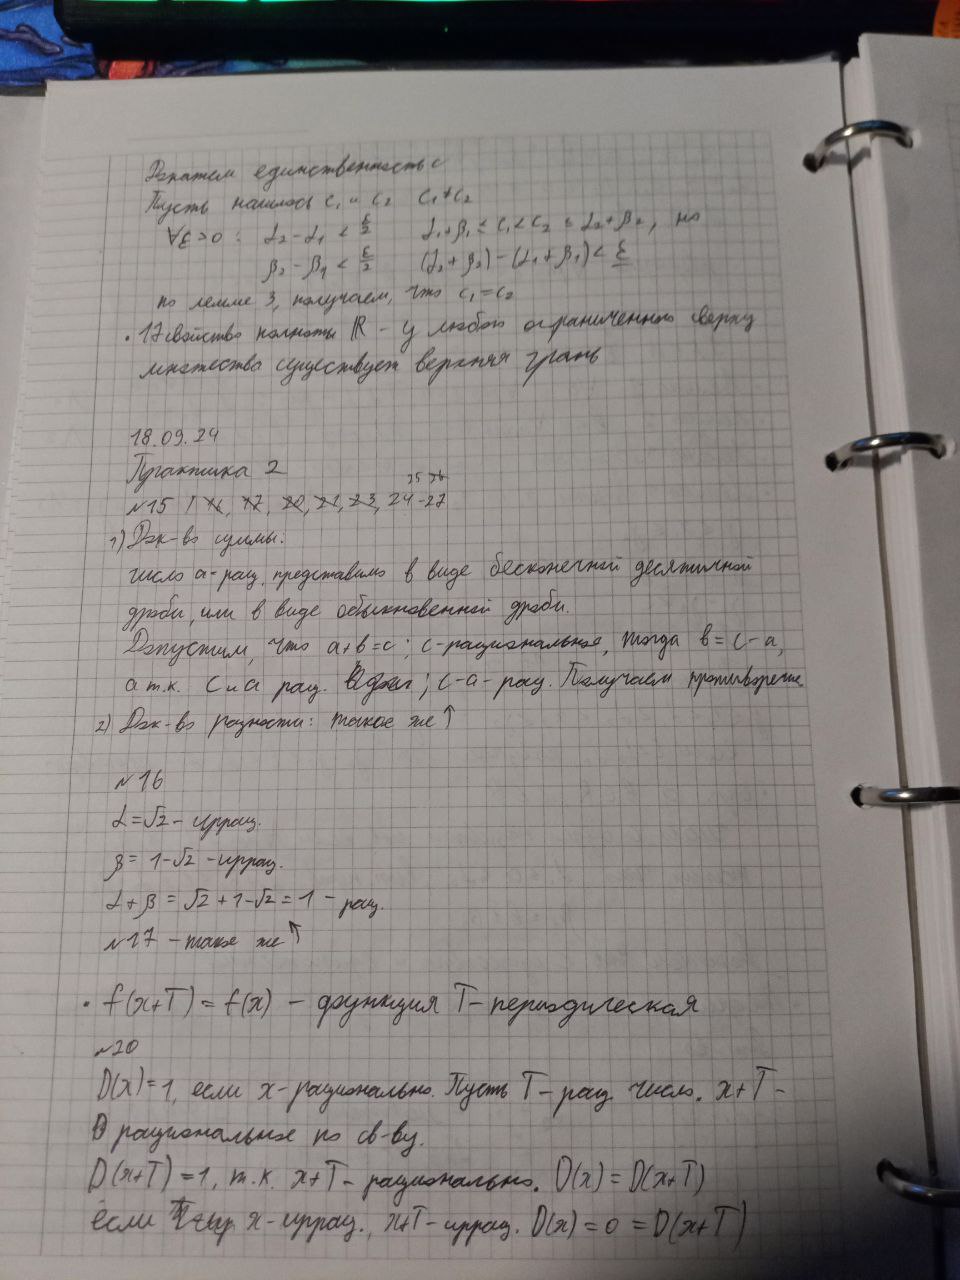 Докажем единственность c
Пусть нашлось c₁ и c₂ c₁≠c₂
∀ε>0: α₂-α₁ < ε/2 α₁+β₁ ≤ c₁ < c₂ ≤ α₂+β₂, но
β₂-β₁ < ε/2 (α₂+β₂)-(α₁+β₁) < ε
по лемме 3, получаем, что c₁=c₂
• 17 свойство полноты ℝ - у любого ограниченного сверху
множества существует верхняя грань
18.09.24
Практика 2
25 26
№15 16, 17, 20, 21, 23, 24-27
1) Док-во суммы:
число a-рац. представимо в виде бесконечной десятичной
дроби, или в виде обыкновенной дроби.
Допустим, что a+b=c; c-рациональное, тогда b=c-a,
а т.к. c и a рац. ; c-a-рац. Получаем противоречие
2) Док-во разности: такое же ↑
№16
α=√2 - иррац.
β= 1-√2 -иррац.
α+β = √2+1-√2 = 1 - рац.
№17 - такое же ↑
• f(x+T) = f(x) - функция T-периодическая
№20
D(x)=1, если x-рационально. Пусть T-рац. число. x+T-
рациональное по св-ву.
D(x+T)=1, т.к. x+T-рационально. D(x)=D(x+T)
если x-иррац., x+T-иррац. D(x)=0=D(x+T)